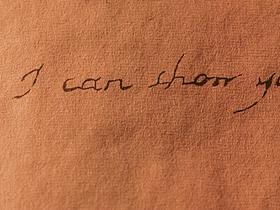 I can show